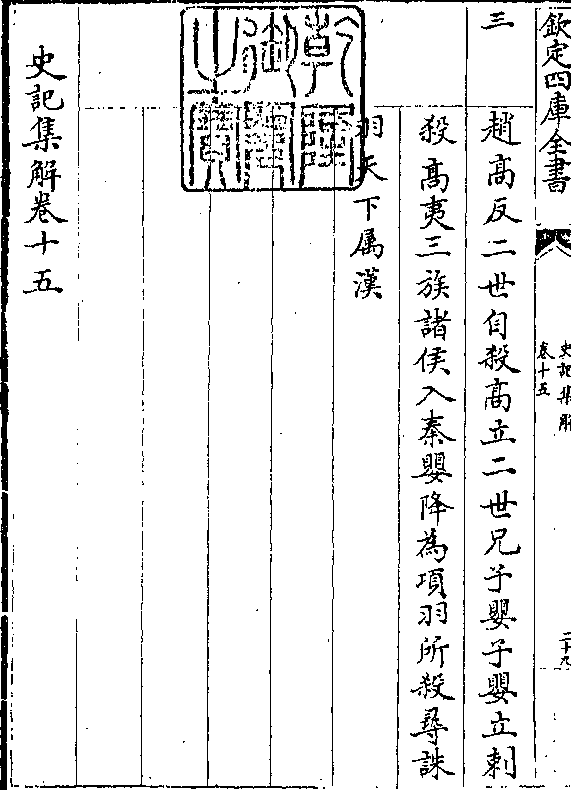 欽定四庫全書
史記集解
卷十五
二十九
三
趙髙反二世自殺髙立二世兄子嬰子嬰立刺
殺髙夷三族諸侯入秦嬰降為項羽所殺尋誅
羽天下属漢
乾隆御覽之寶
史記集解卷十五